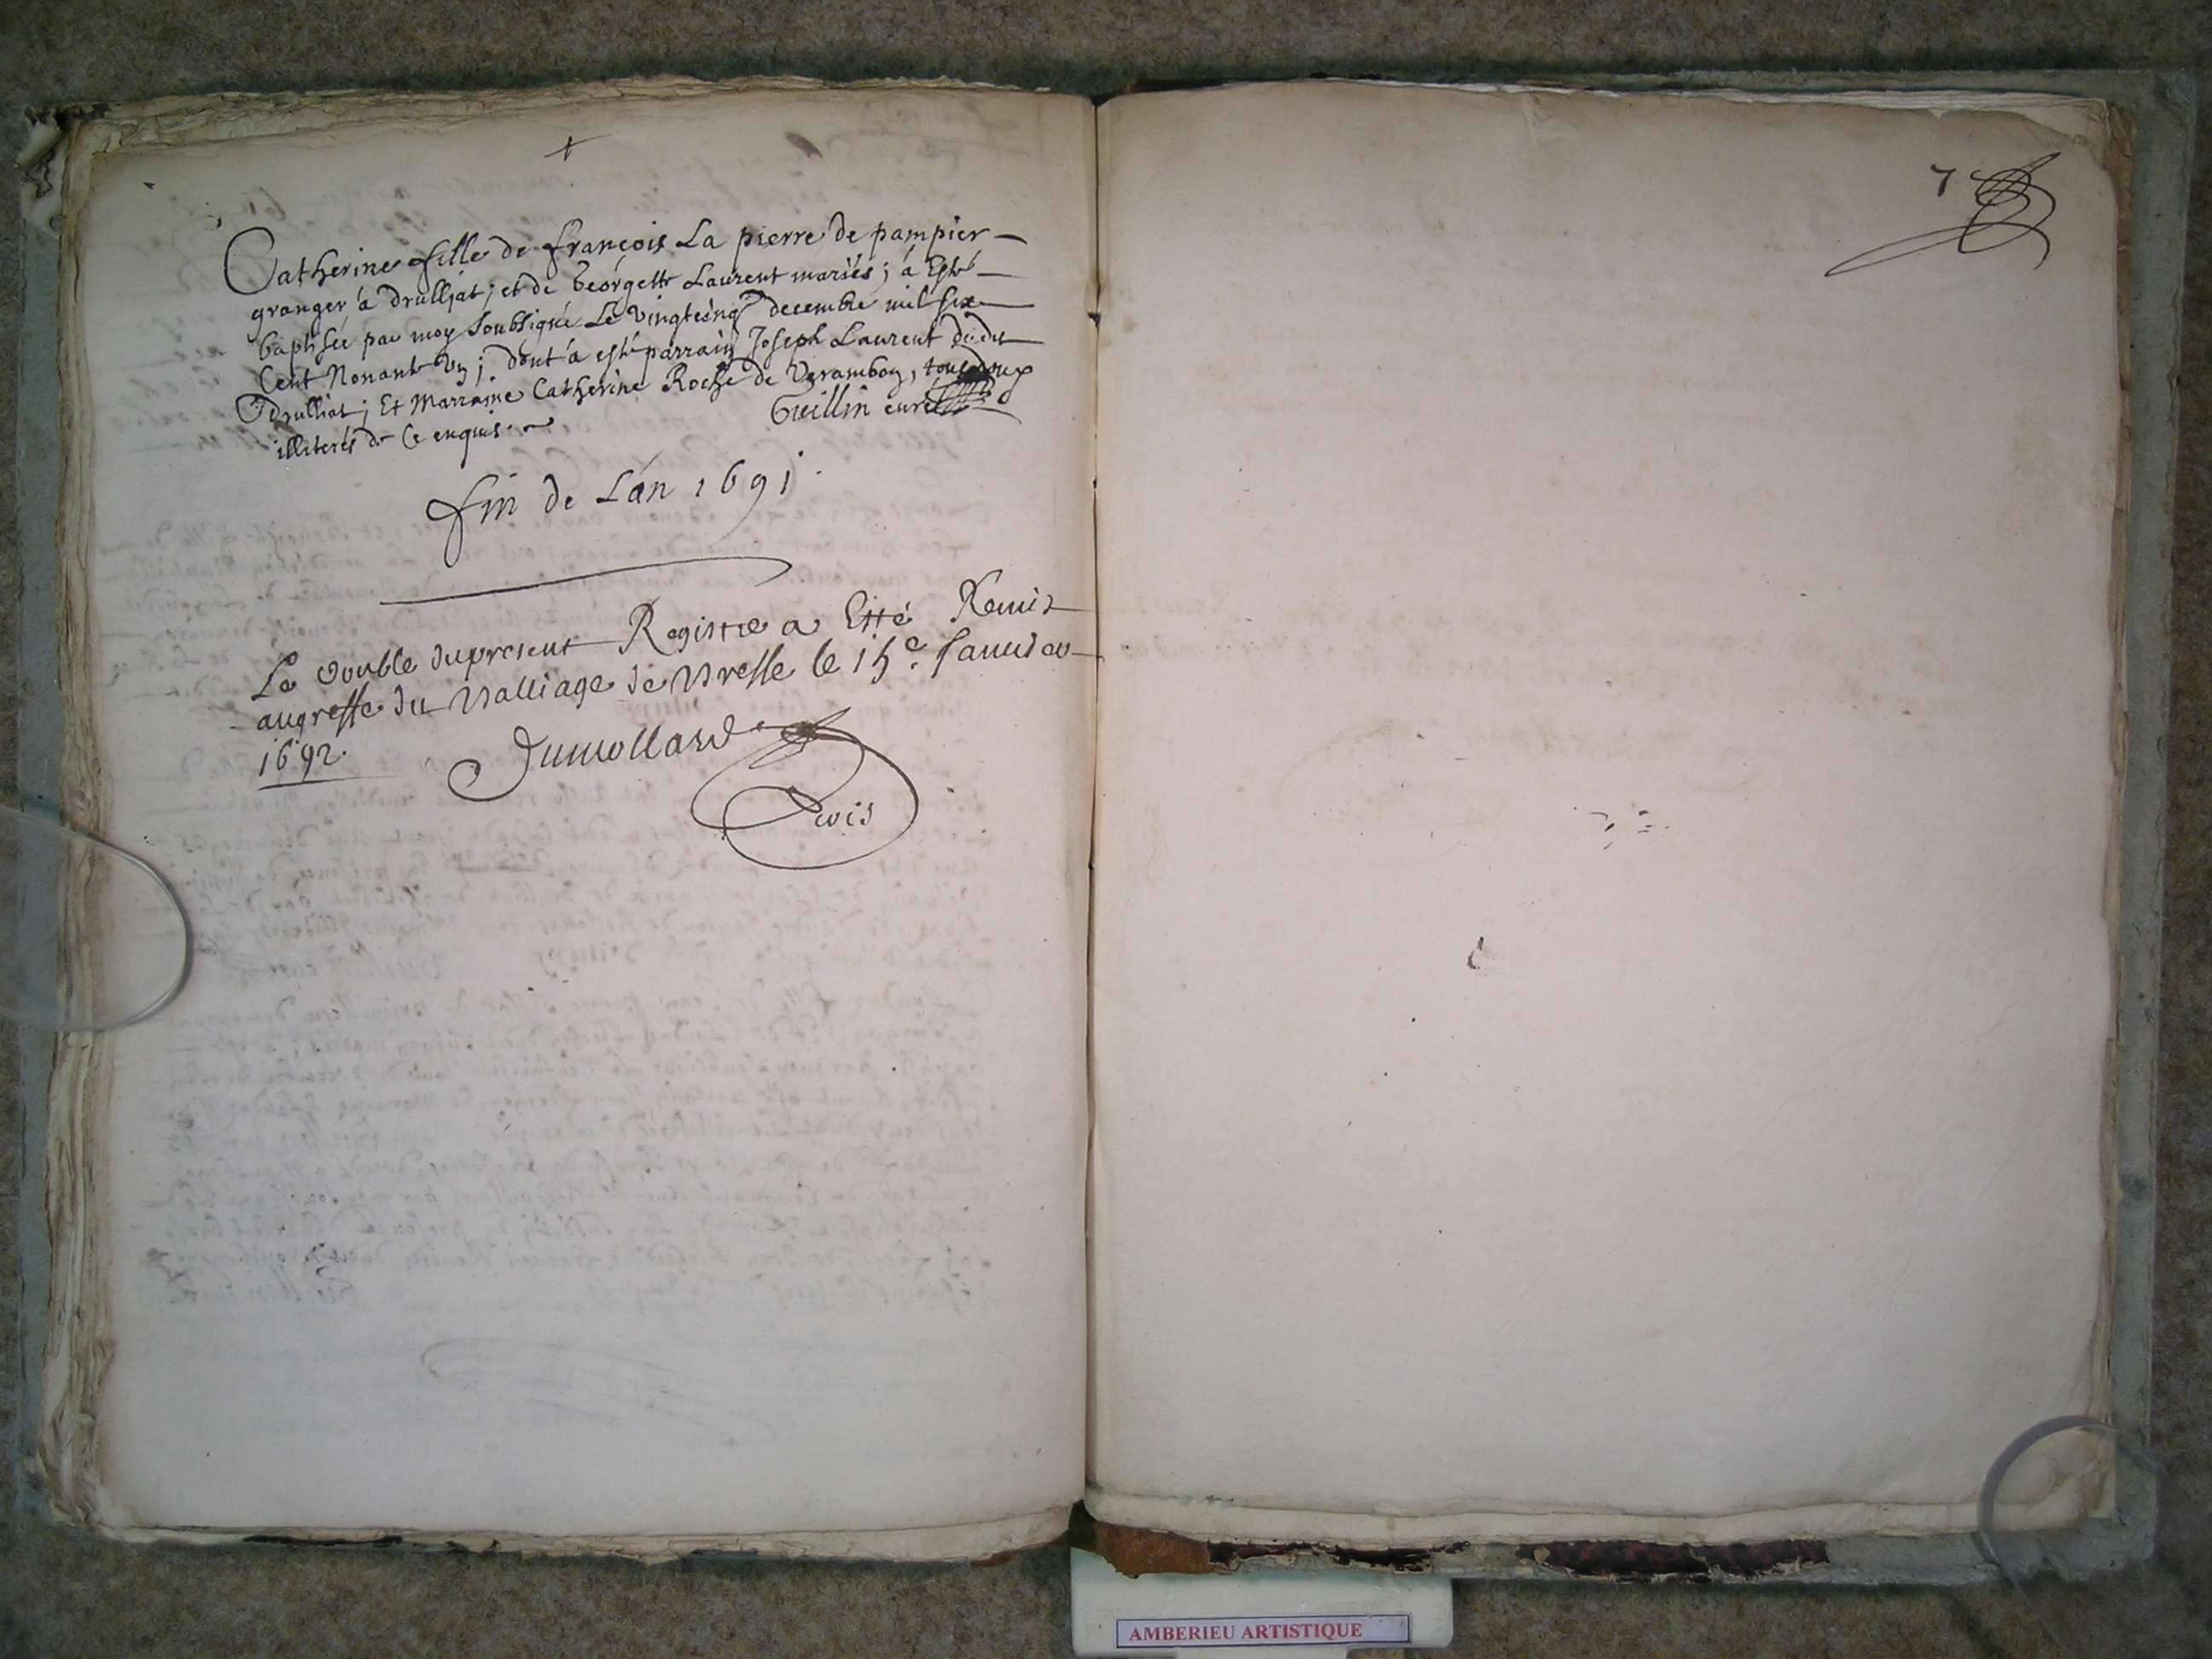 Catherine fille de françois La pierre de pampier
granger à drulliat; et de Georgette Laurent mariés; à Esté
baptisée par moy soubsigné Le vingtcinq decembre mil six
Cent Nonante Un; dont à esté parrain Joseph Laurent du du
drulliat; Et Marraine Catherine Roche de Varambon, tous deux
illiterés de Ce enquis. Guillin curé
fin de Lán 1691
Le double du present Registre a Esté Remis
au greffe du Balliage de Bresse le 15e Janvier
1692.
Dumollard
7
AMBERIEU ARTISTIQUE